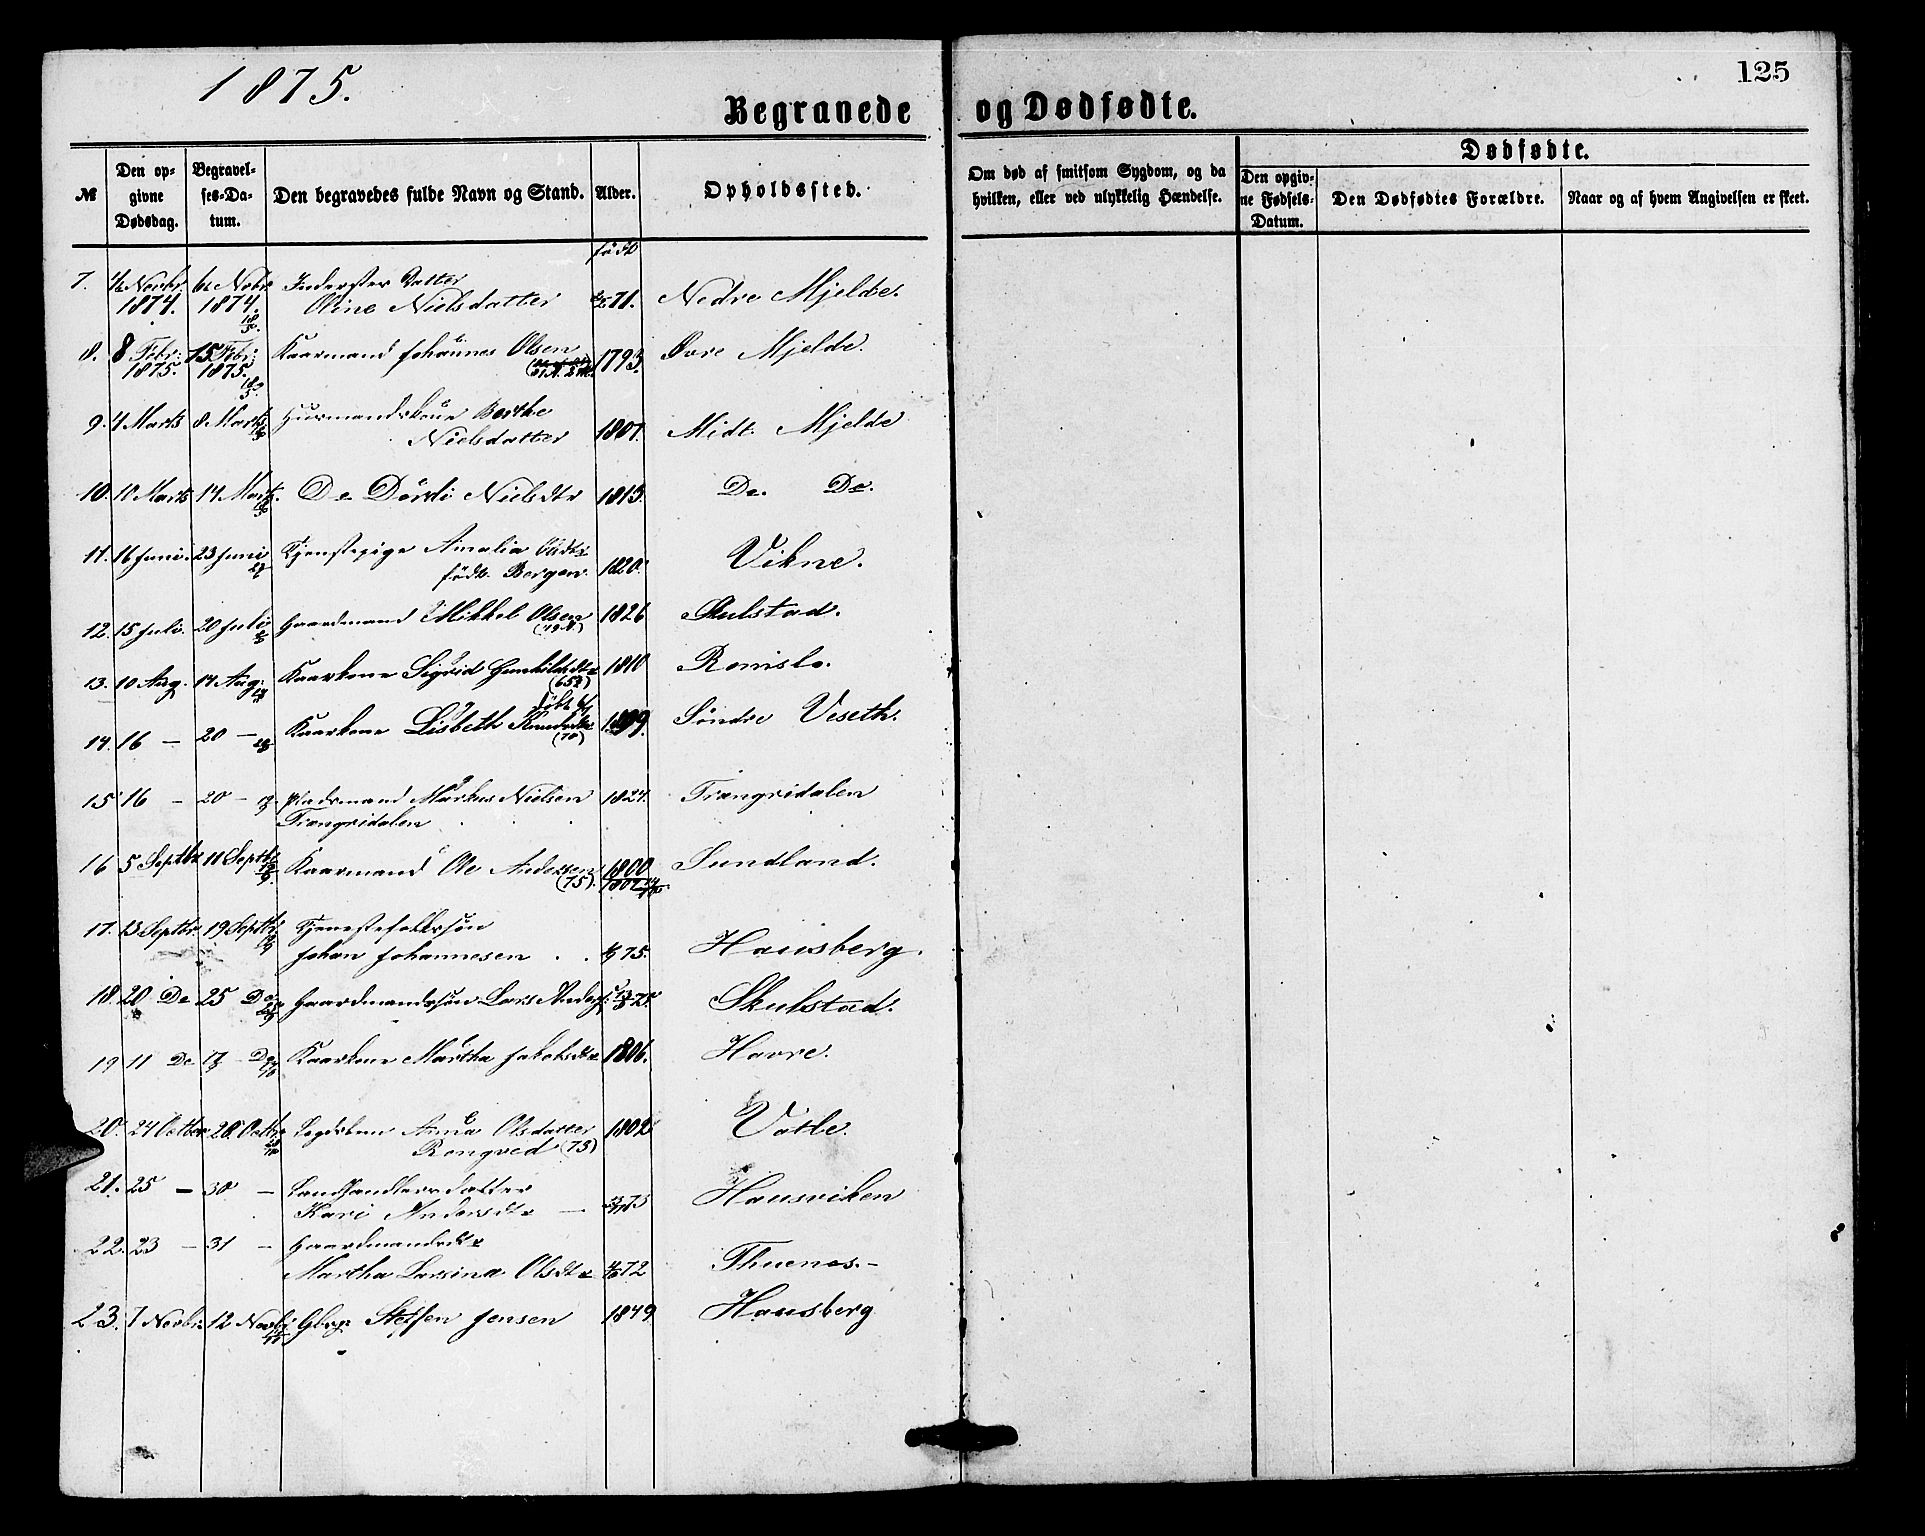 1875.
125
Begravede og Dødfødte.
№
Den opgivne Dødsdag.
Begravelses-Datum.
Den begravedes fulde Navn og Stand.
Alder.
Opholdssted.
Om død af smitsom Sygdom, og da hvilken, eller ved ulykkelig Hændelse.
Dødfødte.
Den opgivne Fødsels-Datum.
Den Dødfødtes Forældre.
Naar og af hvem Angivelsen er skeet.
født
7. Novbr. 1874. Novbr 1874. Datter
Oline Nielsdatter 71. Nedre Mjelde.
8. 8 Febr: 1875. 15 Febr: 1875. Kaarmand Johannes Olsen 1793. Øvre Mjelde.
9. 4 Marts 8 Marts Huusmandskone Berthe
Nielsdatter 1807. Midt. Mjelde
10. 10 Marts 14 Marts. Do Dorthi Nielsdtr 1813. Do. Do.
11. 16 Juni. 23 Juni Tjenestepige Amalia Olsdtr
født. Bergen. 1820. Vikne.
12. 15 Juli. 20 Juli Gaardmand Mikkel Olsen 1826 Skulstad.
13. 10 Aug. 14 Aug. Kaarkone Sigrid Gunhildsdtr 1810 Romslo.
14. 16 — 20 — Kaarkone Lisbeth Knudsdtr Søndre Veseth.
15 16 — 20 — Pladsmand Markus Nielsen 1824. Trangridalen
Trangridalen
16 5 Septbr 11 Septbr Kaarmand Ole Andersen (75). 1800 Sundland.
17. 13 Septbr. 19 Septbr Tjenestefolkssøn
Johan Johannesen . . 75. Hausberg.
18. 20 Do 25 Do Gaardmandssøn Lars Anders. 75. Skulstad.
19 11 Do 17 Do Kaarkone Martha Jakobsdtr 1806. Havre.
20. 24 Octbr 28 Octbr Lægdslem Anna Olsdatter 1802 Votle.
Rongved (73)
21. 25 — 30 — Landhandlersdatter
Kari Andersdtr — 75 Hausviken
22. 23 — 31 — Gaardmandsdtr
Martha Larsina Olsdtr 72 Thuenes.-
23. 7 Novbr: 12 Novbr Steffen Jensen 1849 Hausberg